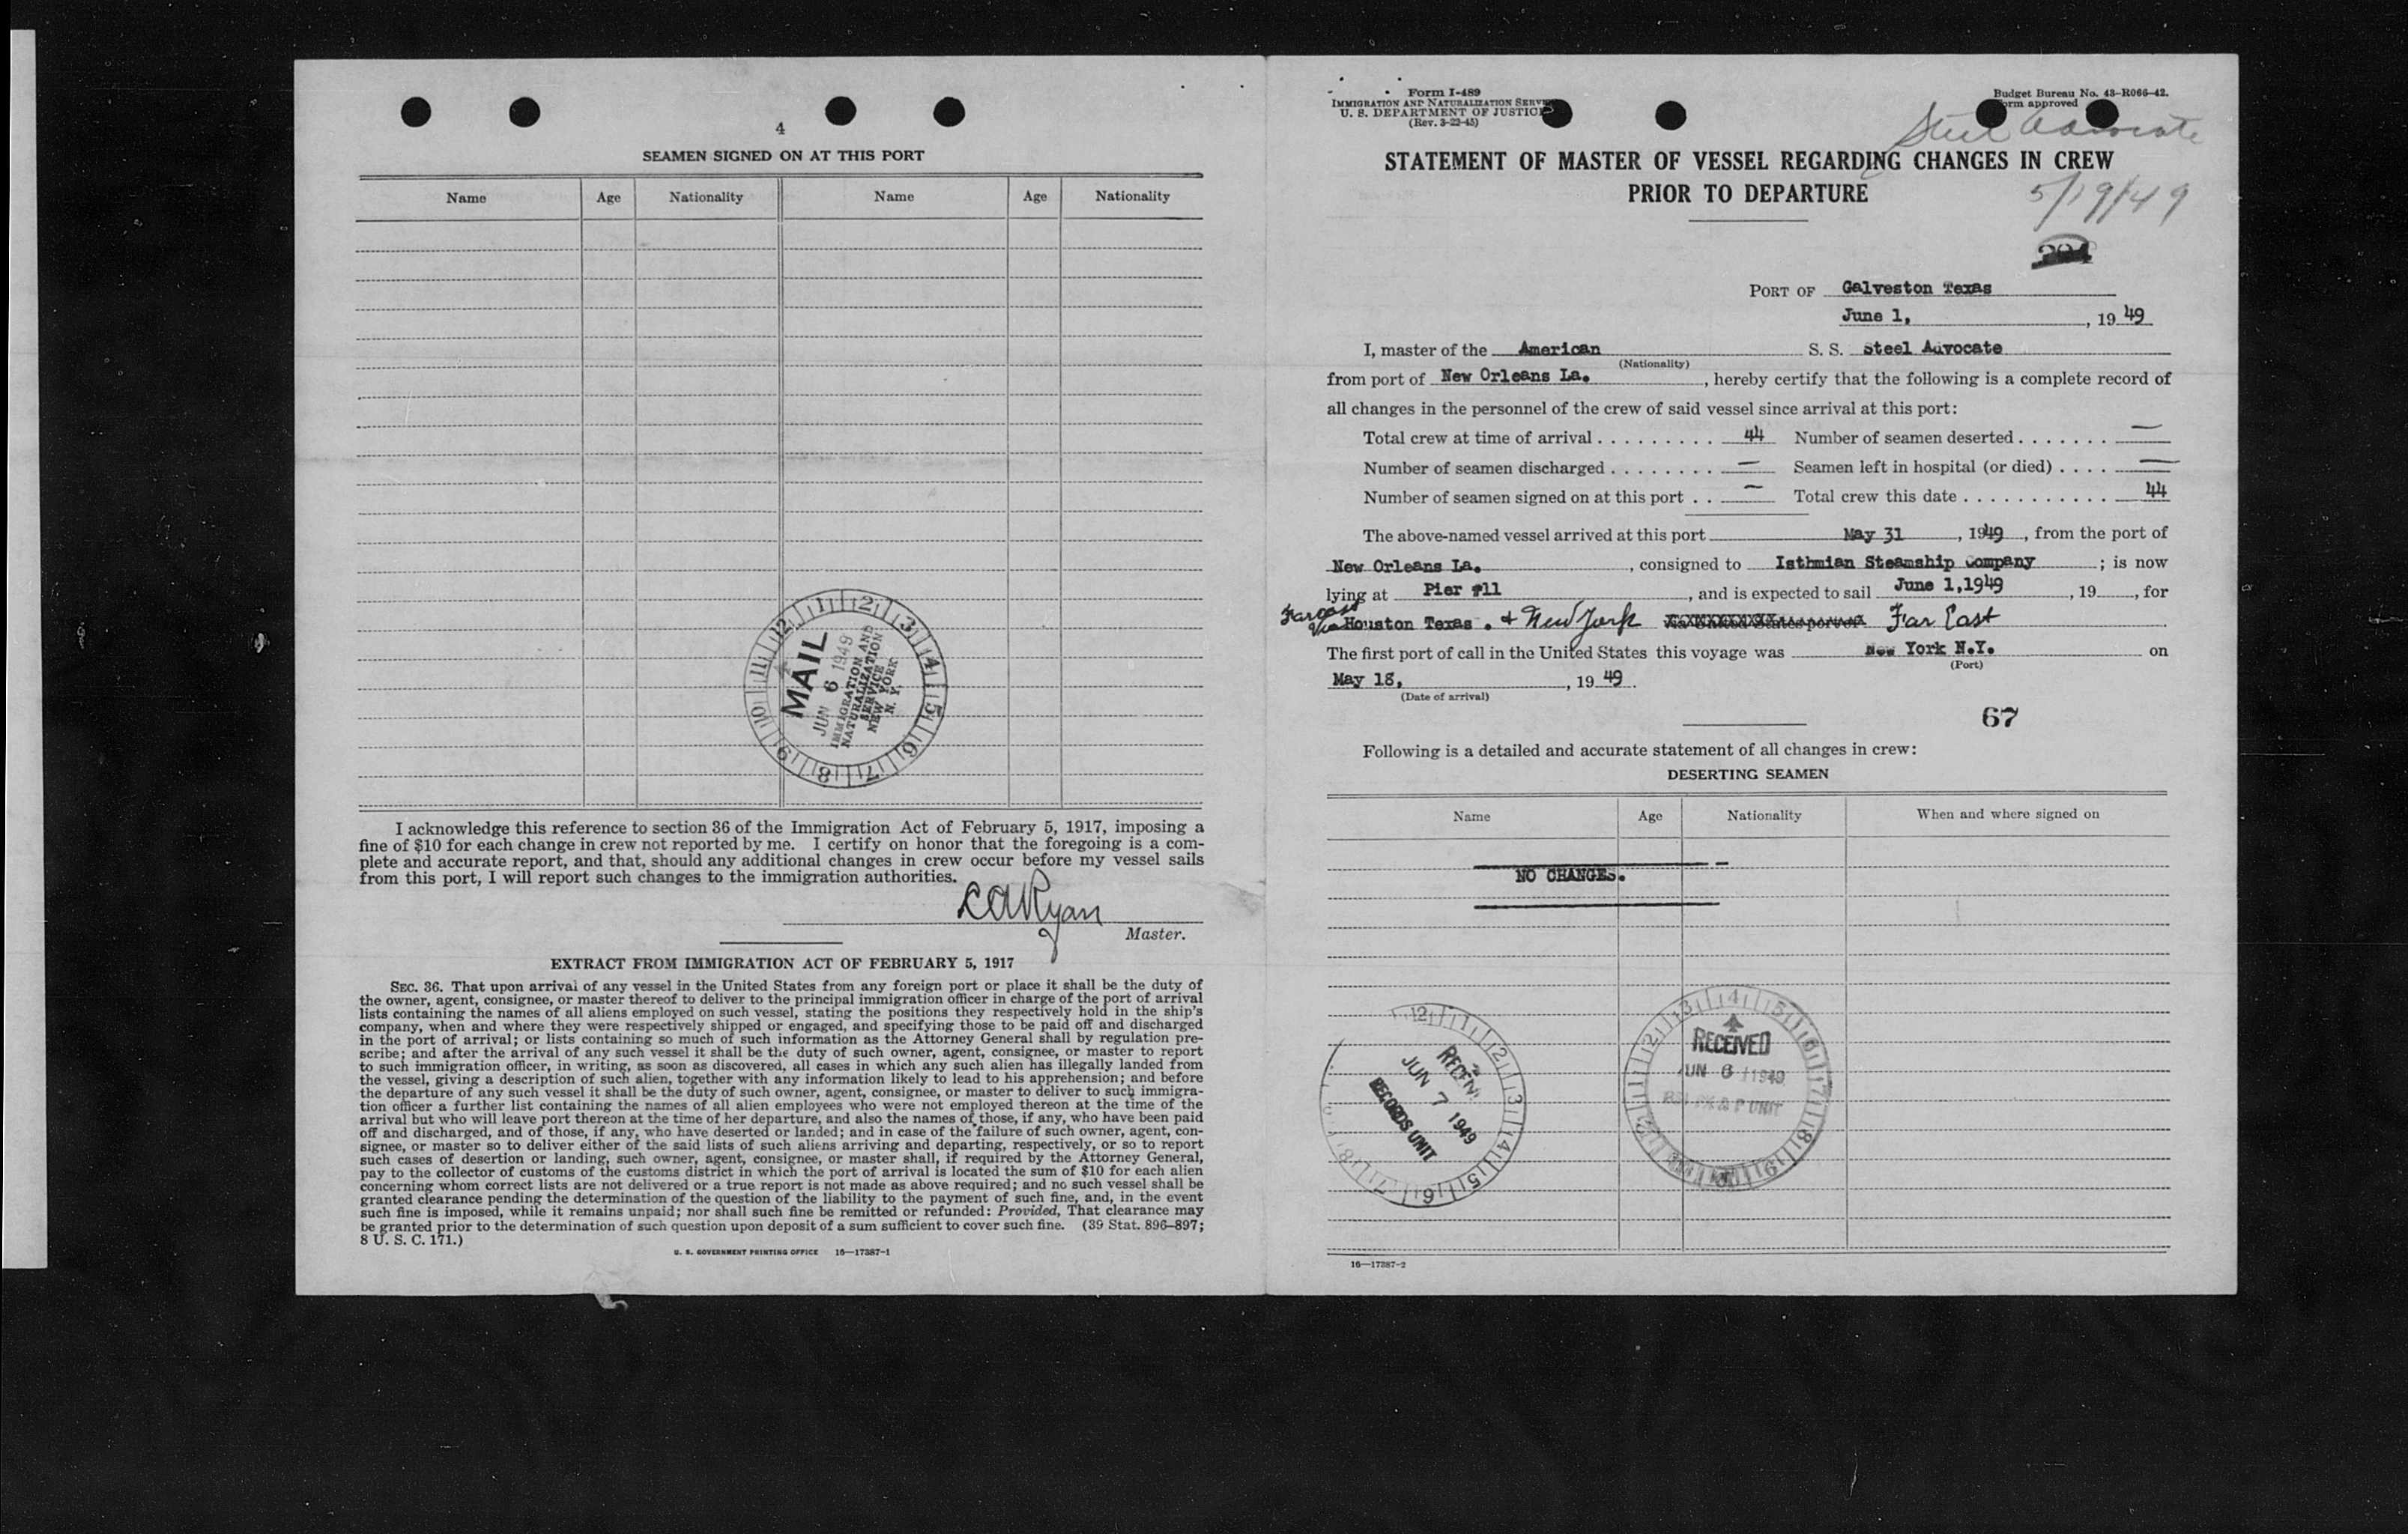 4
SEAMEN SIGNED ON AT THIS PORT
Name Age Nationality Name Age Nationality
MAIL
JUN 6 1949
IMMIGRATION AND
NATURALIZATION
SERVICE
NEW YORK
N. Y.
I acknowledge this reference to section 36 of the Immigration Act of February 5, 1917, imposing a
fine of $10 for each change in crew not reported by me. I certify on honor that the foregoing is a com-
plete and accurate report, and that, should any additional changes in crew occur before my vessel sails
from this port, I will report such changes to the immigration authorities.
C A Ryan
Master.
EXTRACT FROM IMMIGRATION ACT OF FEBRUARY 5, 1917
SEC. 36. That upon arrival of any vessel in the United States from any foreign port or place it shall be the duty of
the owner, agent, consignee, or master thereof to deliver to the principal immigration officer in charge of the port of arrival
lists containing the names of all aliens employed on such vessel, stating the positions they respectively hold in the ship's
company, when and where they were respectively shipped or engaged, and specifying those to be paid off and discharged
in the port of arrival; or lists containing so much of such information as the Attorney General shall by regulation pre-
scribe; and after the arrival of any such vessel it shall be the duty of such owner, agent, consignee, or master to report
to such immigration officer, in writing, as soon as discovered, all cases in which any such alien has illegally landed from
the vessel, giving a description of such alien, together with any information likely to lead to his apprehension; and before
the departure of any such vessel it shall be the duty of such owner, agent, consignee, or master to deliver to such immigra-
tion officer a further list containing the names of all alien employees who were not employed thereon at the time of the
arrival but who will leave port thereon at the time of her departure, and also the names of those, if any, who have been paid
off and discharged, and of those, if any, who have deserted or landed; and in case of the failure of such owner, agent, con-
signee, or master so to deliver either of the said lists of such aliens arriving and departing, respectively, or so to report
such cases of desertion or landing, such owner, agent, consignee, or master shall, if required by the Attorney General,
pay to the collector of customs of the customs district in which the port of arrival is located the sum of $10 for each alien
concerning whom correct lists are not delivered or a true report is not made as above required; and no such vessel shall be
granted clearance pending the determination of the question of the liability to the payment of such fine, and, in the event
such fine is imposed, while it remains unpaid; nor shall such fine be remitted or refunded: Provided, That clearance may
be granted prior to the determination of such question upon deposit of a sum sufficient to cover such fine. (39 Stat. 896–897;
8 U. S. C. 171.)
U. S. GOVERNMENT PRINTING OFFICE 16—17387-1
Form I-489
IMMIGRATION AND NATURALIZATION SERVICE
U. S. DEPARTMENT OF JUSTICE
(Rev. 3-22-45)
Budget Bureau No. 43–R066–42.
Form approved
Steel Advocate
STATEMENT OF MASTER OF VESSEL REGARDING CHANGES IN CREW
PRIOR TO DEPARTURE
5/19/49
PORT OF Galveston Texas
June 1, , 19 49
I, master of the American S. S. Steel Advocate
(Nationality)
from port of New Orleans La. , hereby certify that the following is a complete record of
all changes in the personnel of the crew of said vessel since arrival at this port:
Total crew at time of arrival . . . . . . . . . 44 Number of seamen deserted . . . . . . . —
Number of seamen discharged . . . . . . . . — Seamen left in hospital (or died) . . . . —
Number of seamen signed on at this port . . — Total crew this date . . . . . . . . . . . 44
The above-named vessel arrived at this port May 31 , 1949 , from the port of
New Orleans La. , consigned to Isthmian Steamship Company ; is now
lying at Pier #11 , and is expected to sail June 1,1949 , 19 , for
Far East
Via Houston Texas . & New York Far East
The first port of call in the United States this voyage was New York N.Y. on
(Port)
May 18, , 19 49 .
(Date of arrival)
67
Following is a detailed and accurate statement of all changes in crew:
DESERTING SEAMEN
Name Age Nationality When and where signed on
NO CHANGES.
RECEIV
JUN 7 1949
RECORDS UNIT
RECEIVED
JUN 6 1949
P UNIT
16—17387-2